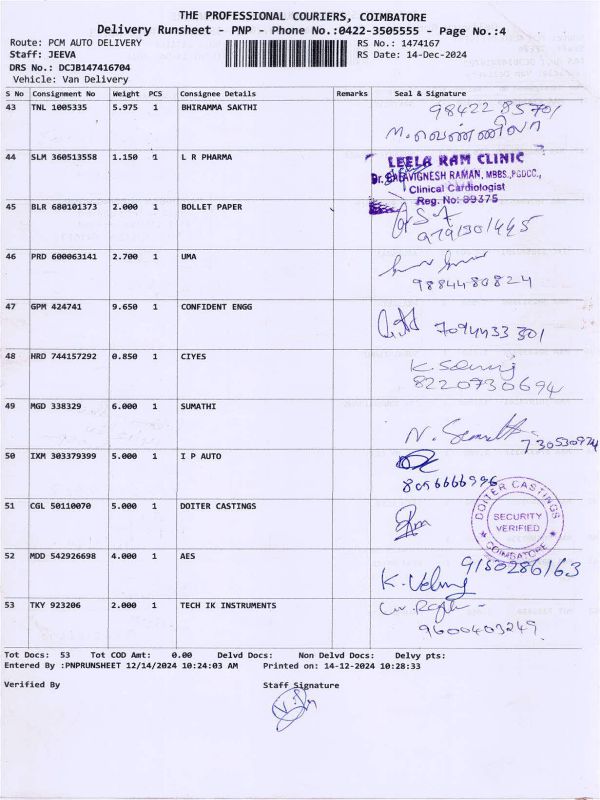 THE PROFESSIONAL COURIERS, COIMBATORE
Delivery Runsheet - PNP - Phone No.:0422-3505555 - Page No.:4
Route: PCM AUTO DELIVERY RS No.: 1474167
Staff: JEEVA RS Date: 14-Dec-2024
DRS No.: DCJB147416704
Vehicle: Van Delivery
S No Consignment No Weight PCS Consignee Details Remarks Seal & Signature
43 TNL 1005335 5.975 1 BHIRAMMA SAKTHI
44 SLM 360513558 1.150 1 L R PHARMA
LEELA RAM CLINIC
Clinical Cardiologist
Reg. No: 89375
45 BLR 680101373 2.000 1 BOLLET PAPER
46 PRD 600063141 2.700 1 UMA
9884480824
47 GPM 424741 9.650 1 CONFIDENT ENGG
48 HRD 744157292 0.850 1 CIYES
8220730694
49 MGD 338329 6.000 1 SUMATHI
50 IXM 303379399 5.000 1 I P AUTO
51 CGL 50110070 5.000 1 DOITER CASTINGS
DOITER CASTINGS
SECURITY
VERIFIED
COIMBATORE
52 MDD 542926698 4.000 1 AES
9150286163
53 TKY 923206 2.000 1 TECH IK INSTRUMENTS
9600403249
Tot Docs: 53 Tot COD Amt: 0.00 Delvd Docs: Non Delvd Docs: Delvy pts:
Entered By :PNPRUNSHEET 12/14/2024 10:24:03 AM Printed on: 14-12-2024 10:28:33
Verified By Staff Signature